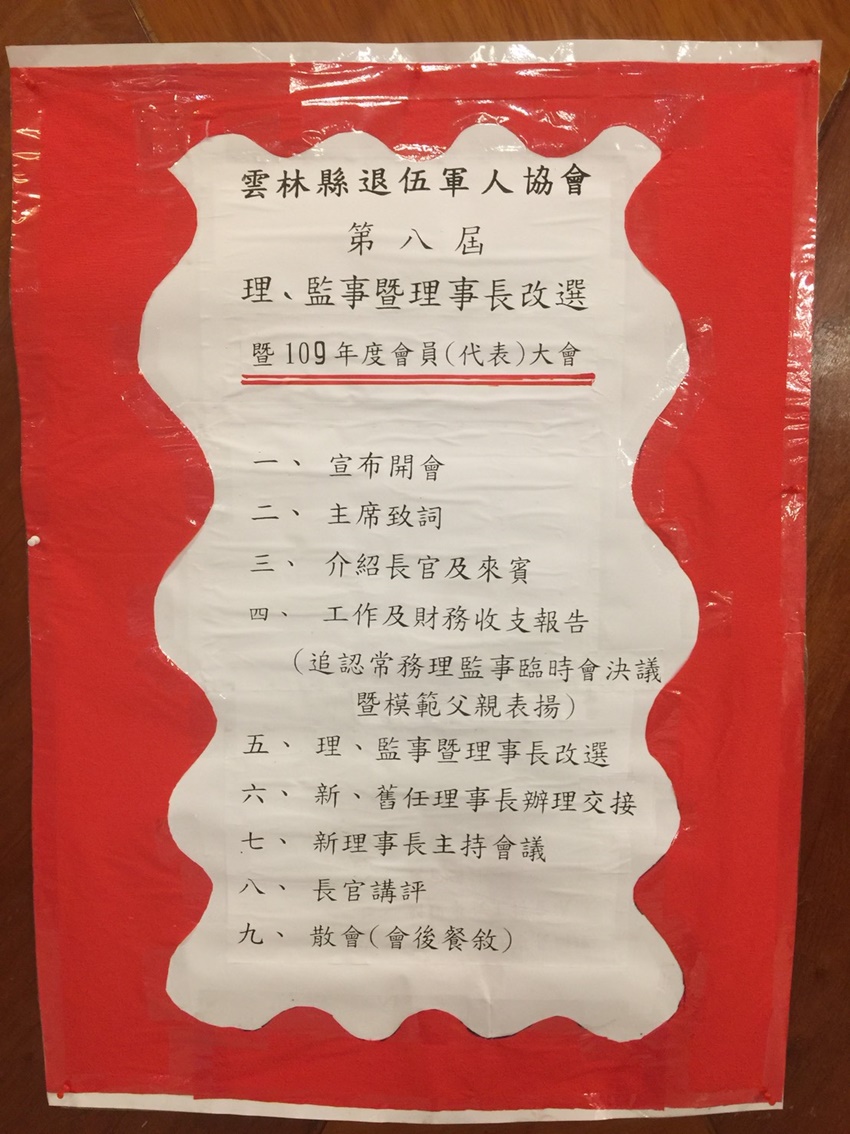 雲林縣退伍軍人協會
第八屆
理、監事暨理事長改選
暨109年度會員(代表)大會
一、 宣布開會
二、 主席致詞
三、 介紹長官及來賓
四、 工作及財務收支報告
(追認常務理監事臨時會決議
暨模範父親表揚)
五、 理、監事暨理事長改選
六、 新、舊任理事長辦理交接
七、 新理事長主持會議
八、 長官講評
九、 散會(會後餐敘)